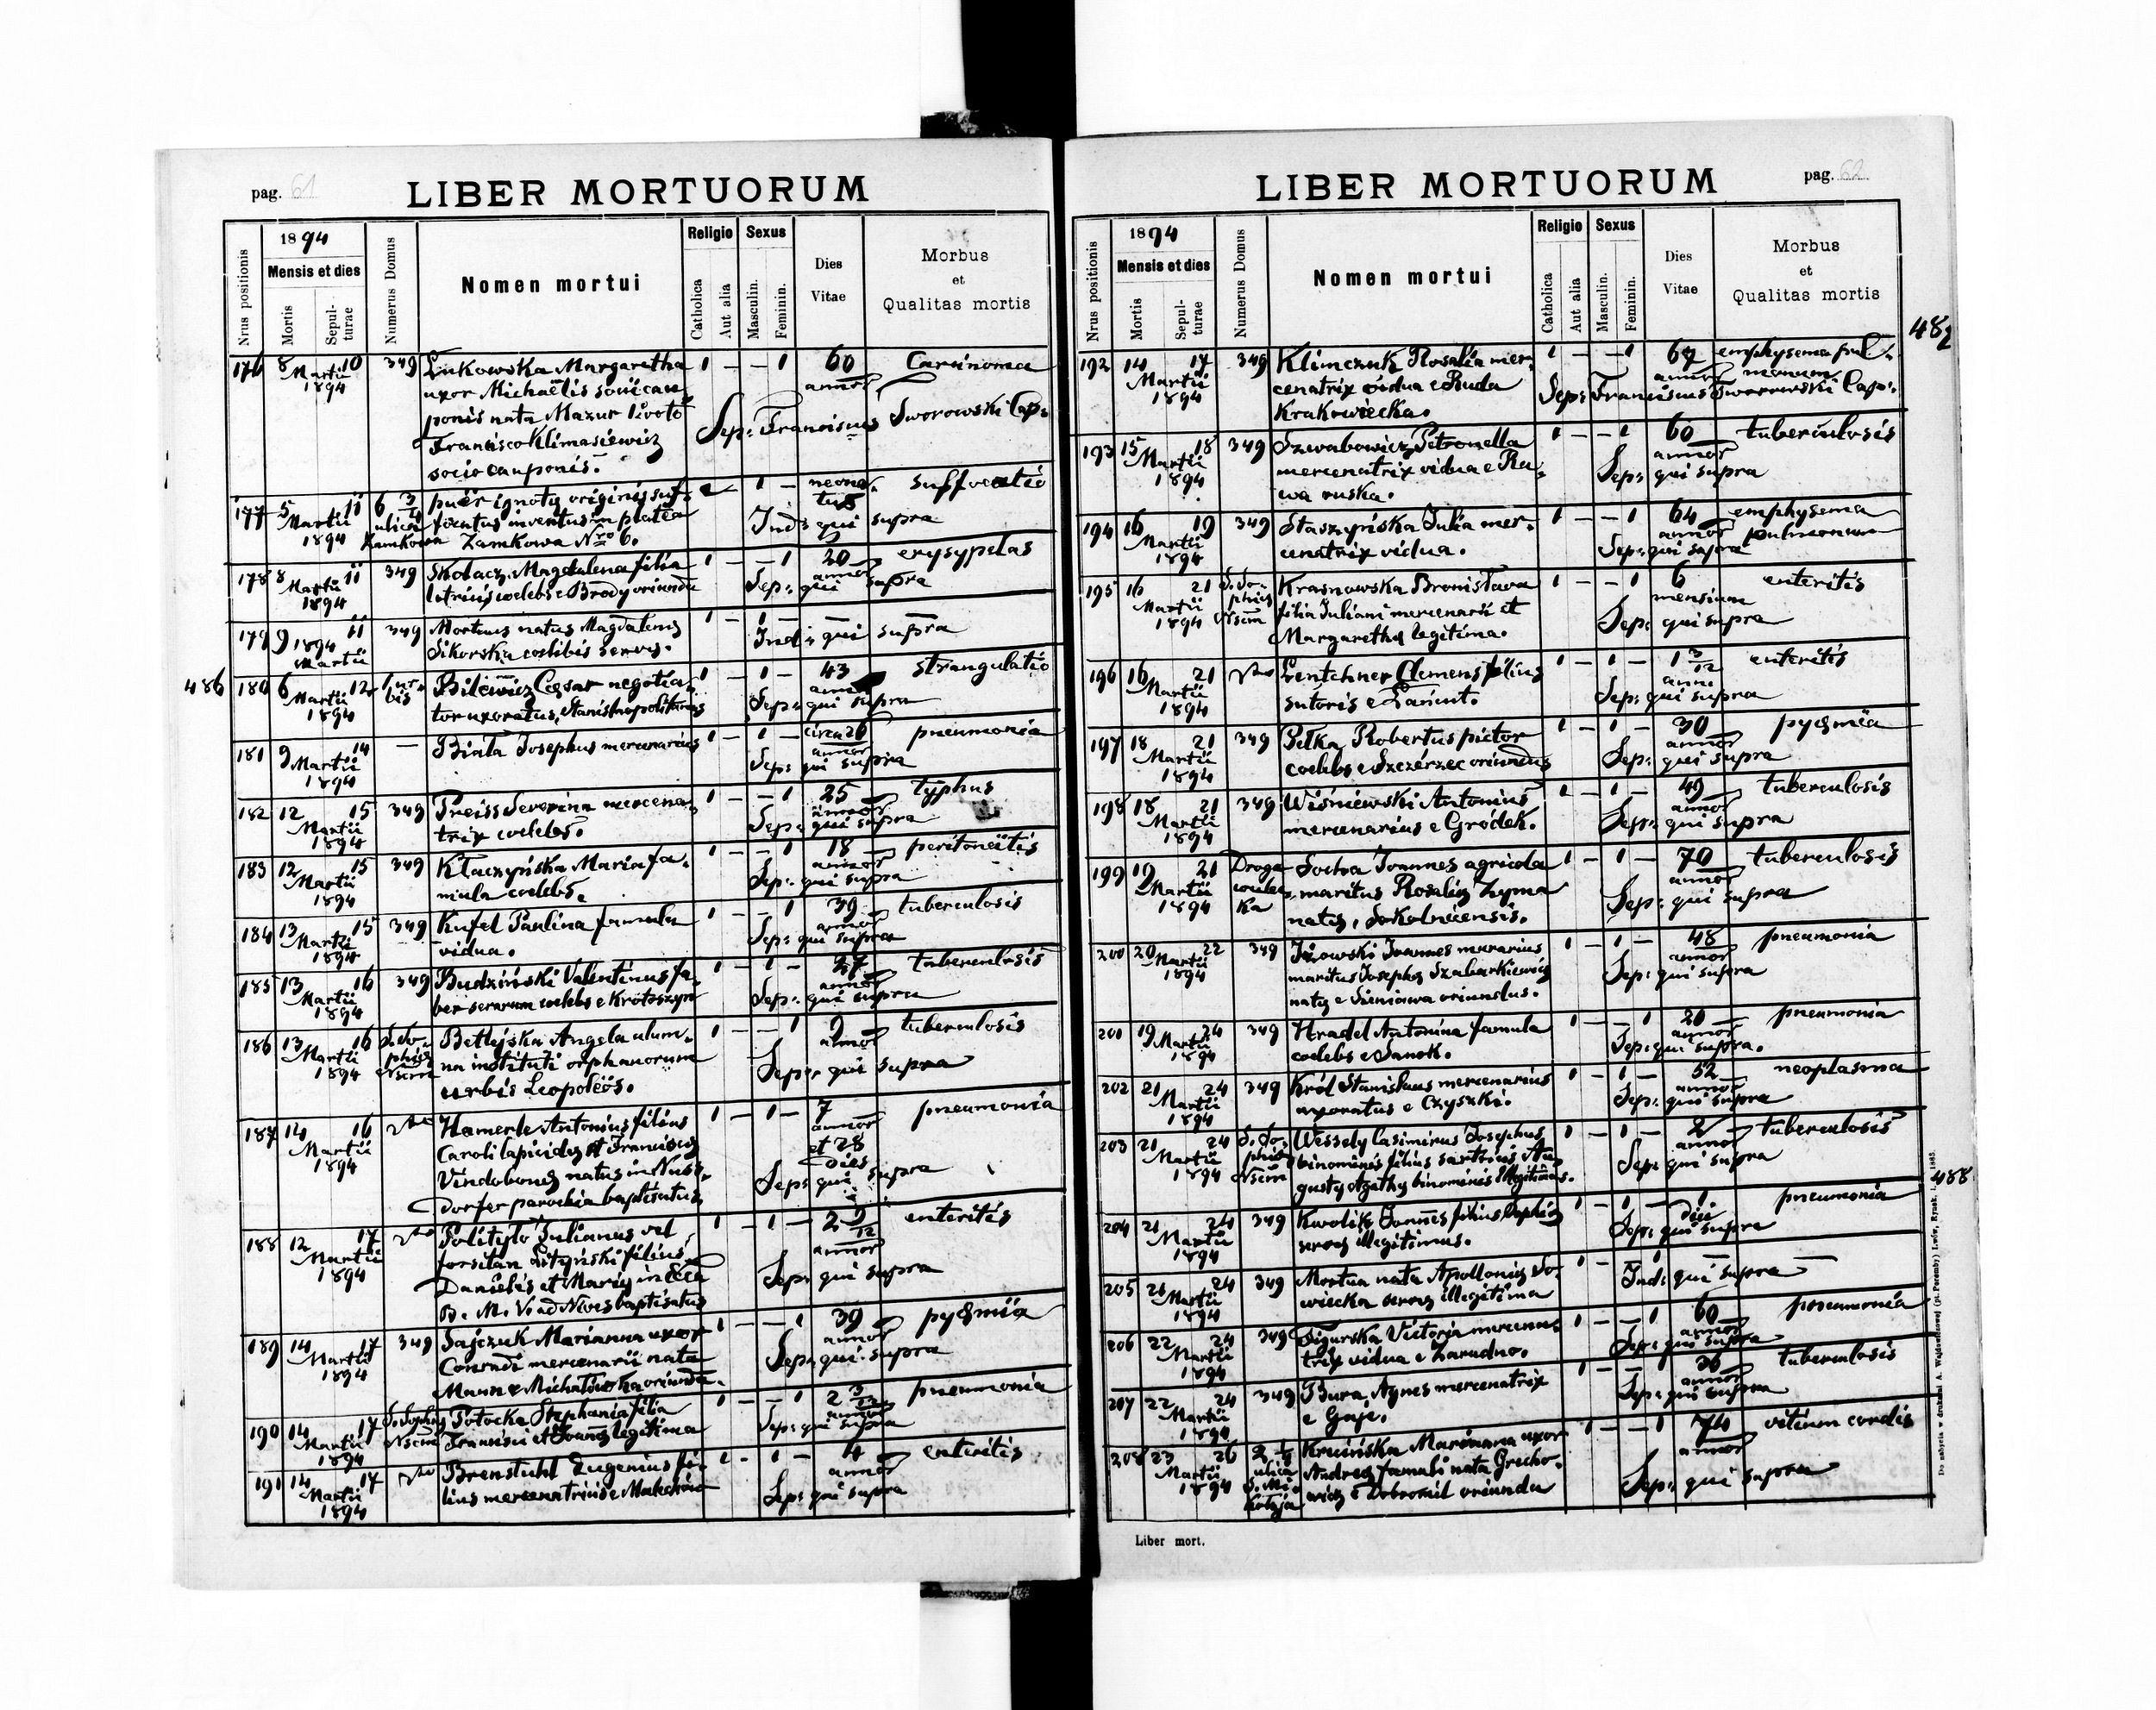 pag. 61
LIBER MORTUORUM
Nrus positionis
1894
Mensis et dies
Mortis
Sepul-
turae
Numerus Domus
Nomen mortui
Religio
Catholica
Aut alia
Sexus
Masculin.
Feminin.
Dies
Vitae
Morbus
et
Qualitas mortis
176 8 10 349 Łukowska Margaretha 1 — — 1 60 Carcinoma
Martii uxor Michaëlis socii cau- annor
1894 ponis nata Mazur 1 voto Sep: Franciscus Sworowski Cap:
Francisco Klimasiewicz
socio cauponis.
177 5 11 6 3/4 puer ignotę originis suf- 1 — neona- suffocatio
Martii ulica focatus inventus in platea tus
1894 Zamkowa Zamkowa Nro 6. Ind: qui supra
178 8 11 349 Skołacz Magdalena filia 1 — — 1 20 erysypelas
Martii coelebs e Brody oriunda annor
1894 Sep: qui supra
179 9 11 349 Mortuus natus Magdalenę 1 — 1 — —
1894 Sikorska coelibis servę. Ind: qui supra
Martii
486 180 6 12 Bilewicz Cęsar negotia- 1 — 1 — 43 strangulatio
Martii tor uxoratus, Stanislaopolitanus Sep: qui supra
1894
181 9 14 — Biała Josephus mercenarius 1 — 1 — circa 26 pneumonia
Martii annor
1894 Sep: qui supra
182 12 15 349 Preiss Severina mercena- 1 — — 1 25 typhus
Martii trix coelebs. annor
1894 Sep: qui supra
183 12 15 349 Kłaczyńska Maria fa- 1 — — 1 18 peritoneitis
Martii mula coelebs. annor
1894 Sep: qui supra
184 13 15 349 Kufel Paulina famula 1 — — 1 39 tuberculosis
Martii vidua. annor
1894 Sep: qui supra
185 13 16 349 Budziński Valentinus fa- 1 — 1 — 27 tuberculosis
Martii ber serarum coelebs e Krotoszyn annor
1894 Sep: qui supra
186 13 16 S. So- Betlejska Angela alum- 1 — — 1 9 tuberculosis
Martii phię na instituti orphanorum annor
1894 Nsem urbis Leopoleos. Sep: qui supra
187 14 16 Hamerle Antonius filius 1 — 1 — 7 pneumonia
Martii Caroli lapicidę et Franciscę annor
1894 Vindobonę natus in Nuss- et 28
dorfer parochia baptisatus dies
Sep: qui supra
188 12 17 Polityło Julianus vel 1 — 1 — 2 9/12 enteritis
Martii forsitan Lityński filius annor
1894 Danielis et Marię in Eccl. Sep: qui supra
B. M. V. ad Nives baptisatus
189 14 17 349 Sajczuk Marianna uxor 1 — — 1 39 pyęmia
Martii Conradi mercenarii nata annor
1894 Maun e Michałówka oriunda. Sep: qui supra
190 14 17 S. Sophię Potocka Stephania filia 1 — — 1 2 3/12 pneumonia
Martii Nsem Francisci et Joannę legitima annor
1894 Sep: qui supra
191 14 17 Brenstuhl Eugenius fi- 1 — 1 — 4 enteritis
Martii lius mercenatricis e annor
1894 Sep: qui supra
pag. 62
LIBER MORTUORUM
Nrus positionis
1894
Mensis et dies
Mortis
Sepul-
turae
Numerus Domus
Nomen mortui
Religio
Catholica
Aut alia
Sexus
Masculin.
Feminin.
Dies
Vitae
Morbus
et
Qualitas mortis
487
192 14 17 349 Klimczuk Rosalia mer- 1 — — 1 67 emphysema pul-
Martii cenatrix vidua e Ruda annor monum
1894 Krakowiecka. Sep: Franciscus Sworowski Cap:
193 15 18 349 Szwabowicz Petronella 1 — — 1 60 tuberculosis
Martii mercenatrix vidua e Ra- annor
1894 wa ruska. Sep: qui supra
194 16 19 349 Staszyńska Julia mer- 1 — — 1 64 emphysema
Martii cenatrix vidua. annor pulmonum
1894 Sep: qui supra
195 16 21 S. So- Krasnowska Bronisława 1 — — 1 6 enteritis
Martii phię filia Juliani mercenarii et mensium
1894 Nsem Margarethę legitima. Sep: qui supra
196 16 21 Lentchner Clemens filius 1 — 1 — 1 3/12 enteritis
Martii sutoris e Łańcut. anni
1894 Sep: qui supra
197 18 21 349 Pełka Robertus pictor 1 — 1 — 30 pyęmia
Martii coelebs e Szczérzec oriundus annor
1894 Sep: qui supra
198 18 21 349 Wiśniewski Antonius 1 — 1 — 49 tuberculosis
Martii mercenarius e Gródek. annor
1894 Sep: qui supra
199 19 21 Droga Socha Joannes agricola 1 — 1 — 70 tuberculosis
Martii maritus Rosalię Zyma annor
1894 ka natę, Sokolnicensis. Sep: qui supra
200 20 22 349 Iżowski Joannes murarius 1 — 1 — 48 pneumonia
Martii maritus Josephę Szabarkiewicz annor
1894 natę e Sieniawa oriundus. Sep: qui supra
201 19 24 349 Hradel Antonina famula 1 — — 1 20 pneumonia
Martii coelebs e Sanok. annor
1894 Sep: qui supra.
202 21 24 349 Król Stanislaus mercenarius 1 — 1 — 52 neoplasma
Martii uxoratus e Czyszki. annor
1894 Sep: qui supra
203 21 24 S. So- Wessely Casimirus Josephus 1 — 1 — 2 tuberculosis
Martii phię binominis filius sartricis Au- annor
1894 Nsem gustę Agathę binominis illegitimus. Sep: qui supra
488
204 21 24 349 Kwolik Joannes filius Sophię 1 — 1 — 1 pneumonia
Martii servę illegitimus. diei
1894 Sep: qui supra
205 21 24 349 Mortua nata Apollonię So- 1 — 1 —
Martii wiecka servę illegitima Ind: qui supra
1894
206 22 24 349 Figurska Victoria mercena- 1 — — 1 60 pneumonia
Martii trix vidua e Zarudno. annor
1894 Sep: qui supra
207 22 24 349 Bura Agnes mercenatrix 1 — — 1 26 tuberculosis
Martii e Gaje. annor
1894 Sep: qui supra
208 23 26 ulica Marianna uxor 1 — — 1 74 vitium cordis
Martii S. Mi- Andreę famuli nata Grocho- annor
1894 kołaja wicz e Dobromil oriunda Sep: qui supra
Liber mort.